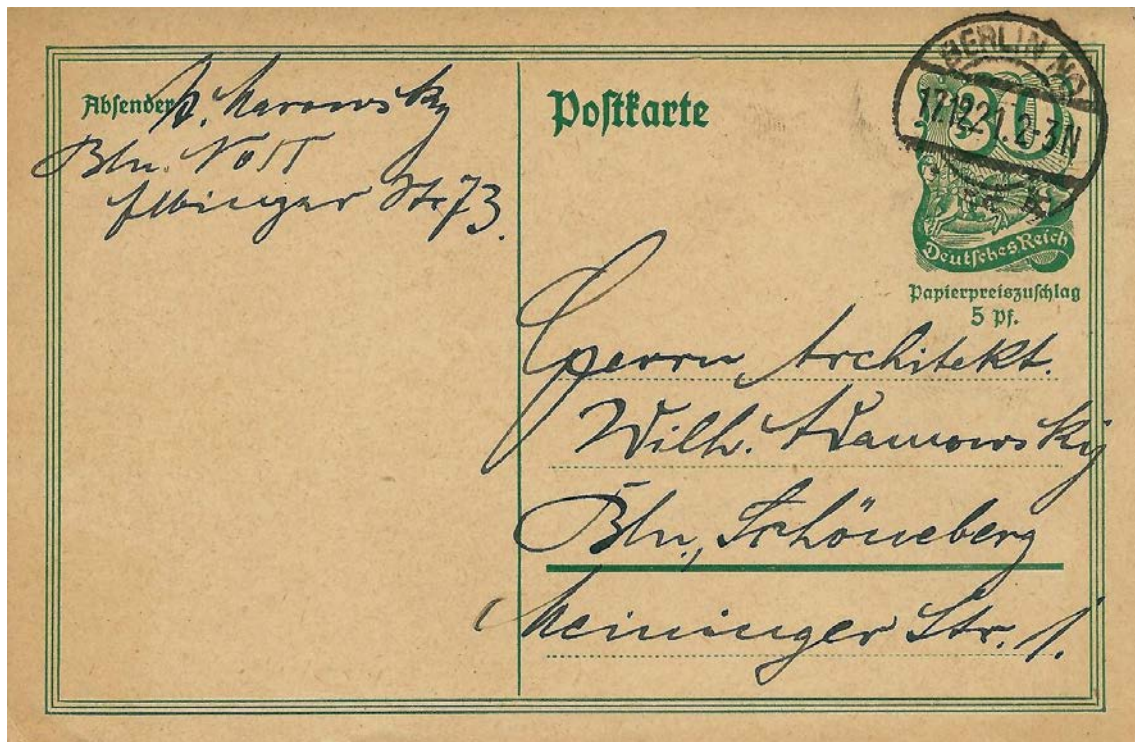 Absender A. Marowsky
Bln. NO 18
Elbinger Str. 73.
Postkarte
BERLIN NO
17.12.21. 2-3N
30
Deutsches Reich
Papierpreiszuschlag
5 Pf.
Herrn Architekt.
Wilh. Adamowsky
Bln., Schöneberg
Meininger Str. 1.